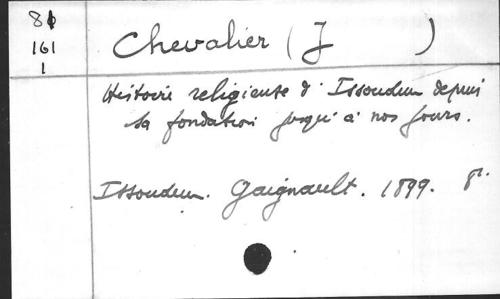 81
161
1
Chevalier (J )
Histoire religieuse d'Issoudun depuis
sa fondation jusqu'à nos jours.
Issoudun. Gaignault. 1899. gr.